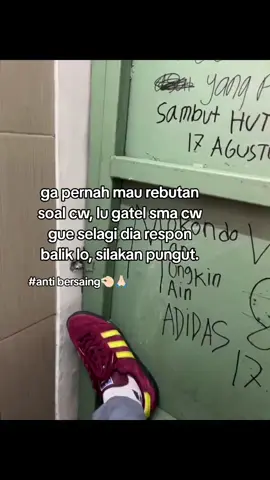 yang
sambut HUT
17 AGUSTU
ga pernah mau rebutan
soal cw, lu gatel sma cw
gue selagi dia respon
balik lo, silakan pungut.
#anti bersaing👌🏻🙏🏻
ungkin
Ain
ADIDAS
17